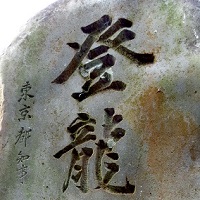 登龍
東京都知事